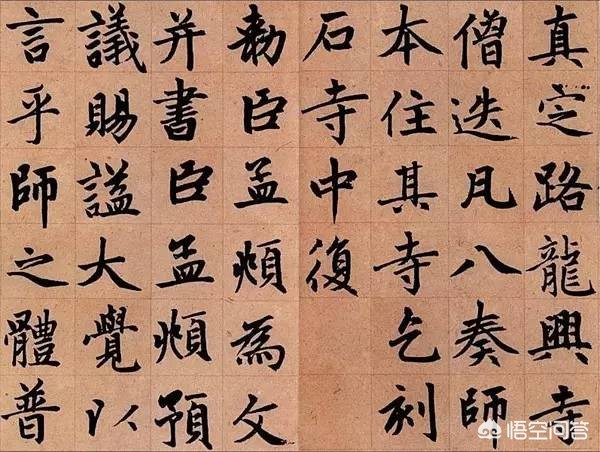 真定路龍興寺
僧迭凡八奏師
本住其寺乞刻
石寺中復
勑臣孟頫為文
并書臣孟頫預
議賜謚大覺以
言乎師之體普
悟空问答